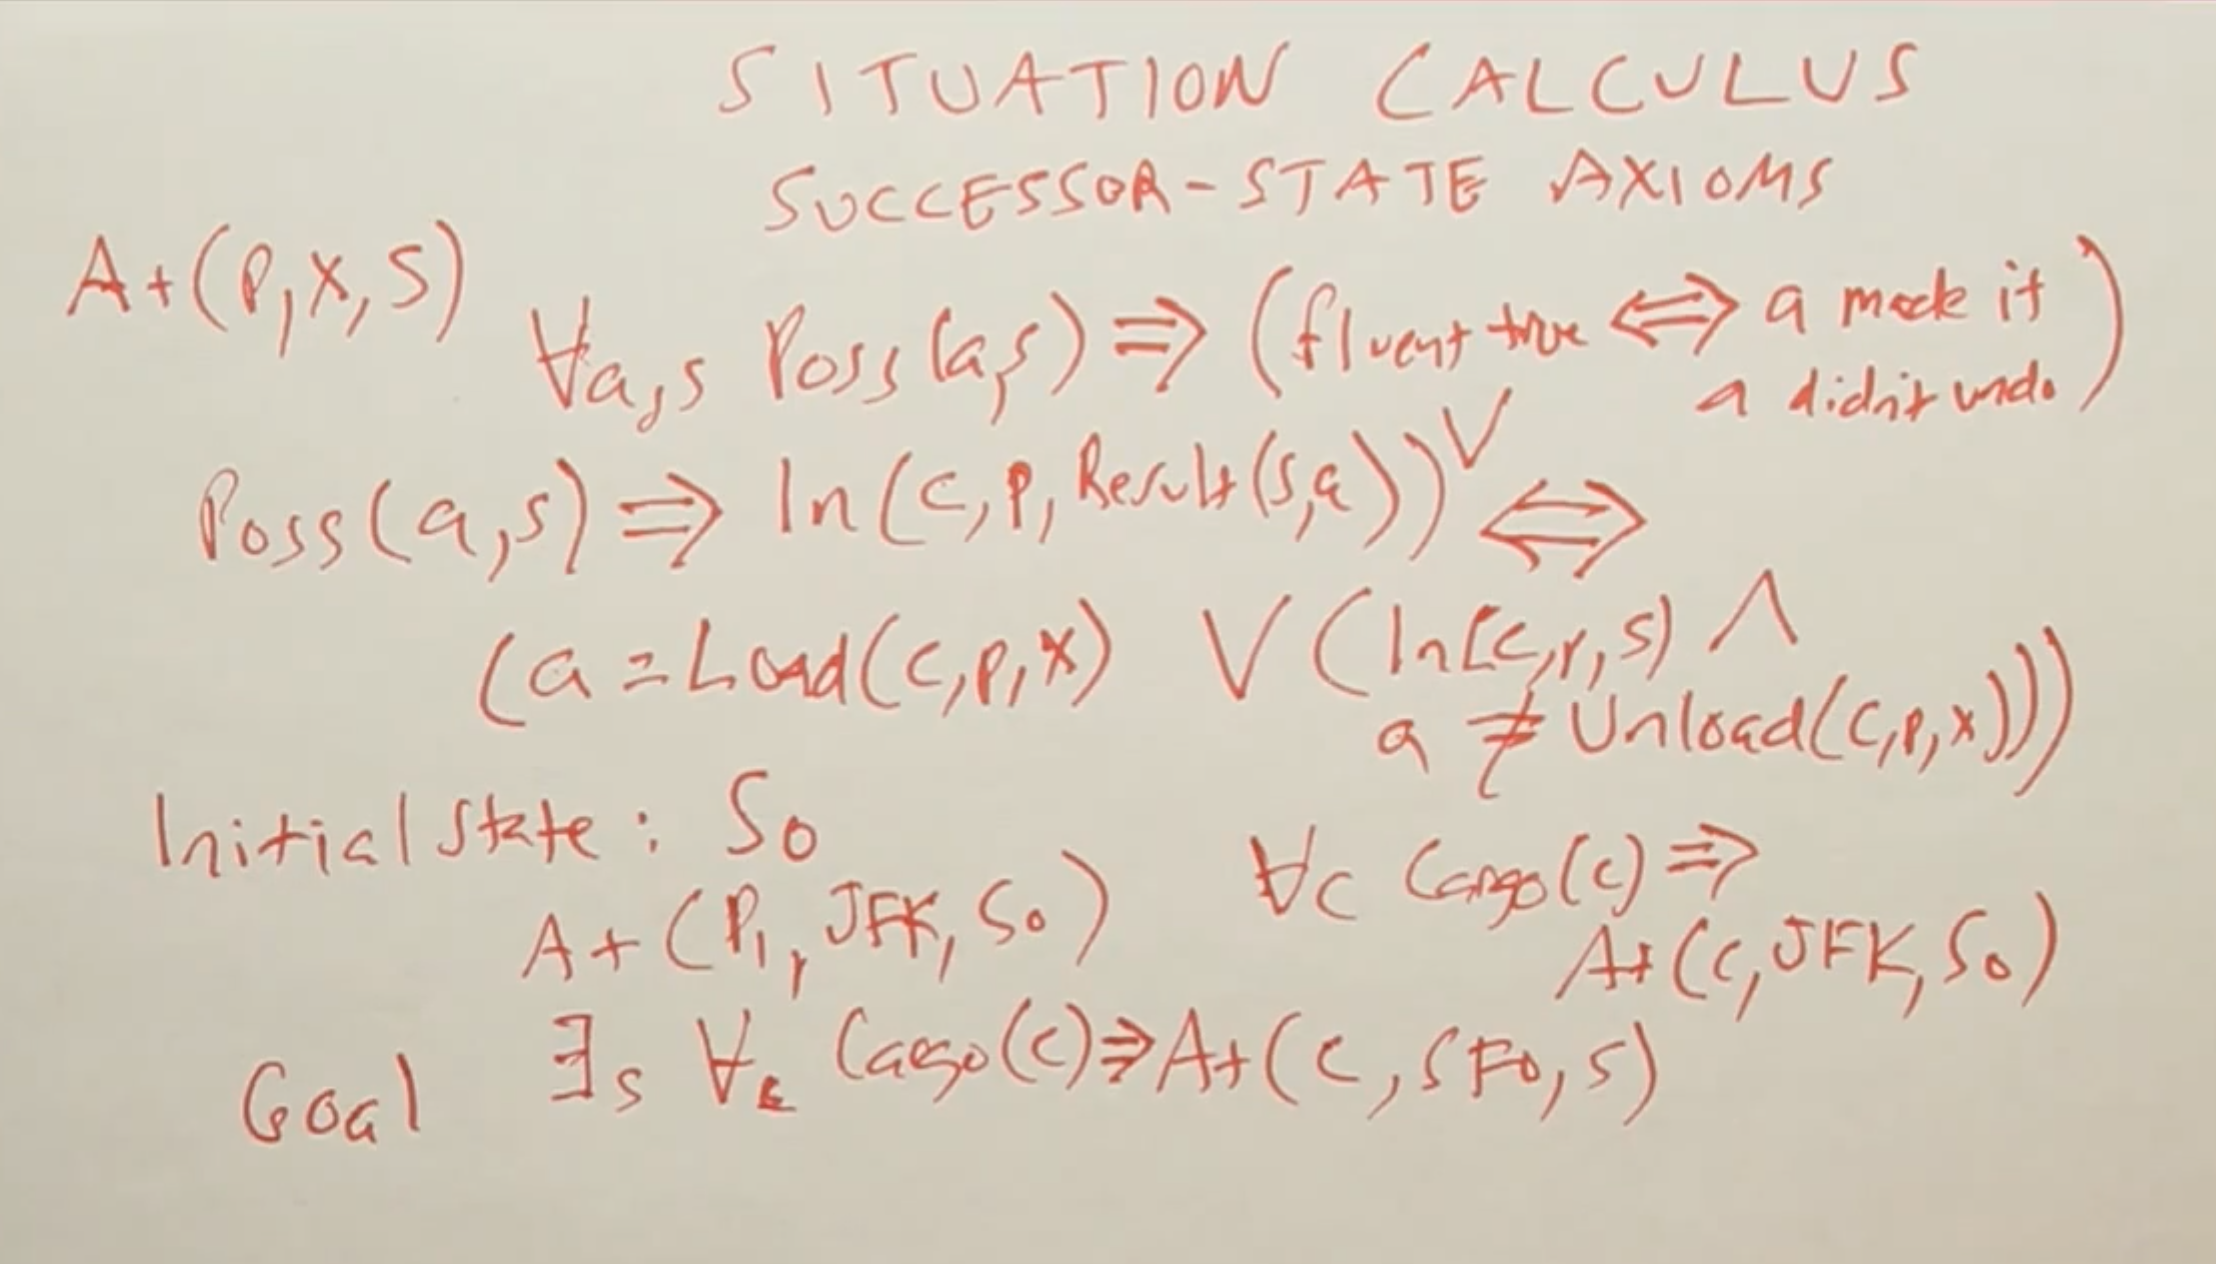 SITUATION CALCULUS
SUCCESSOR-STATE AXIOMS
At(P,x,s)
∀a,s Poss(a,s) ⇒ (fluent true ⇔ a made it
∨ a didn't undo)
Poss(a,s) ⇒ In(c,p,Result(s,a)) ⇔
(a = Load(c,p,x) ∨ (In(c,p,s) ∧
a ≠ Unload(c,p,x)))
Initial State: S0
At(P1, JFK, S0) ∀c Cargo(c) ⇒
At(c, JFK, S0)
Goal ∃s ∀c Cargo(c) ⇒ At(c, SFO, s)